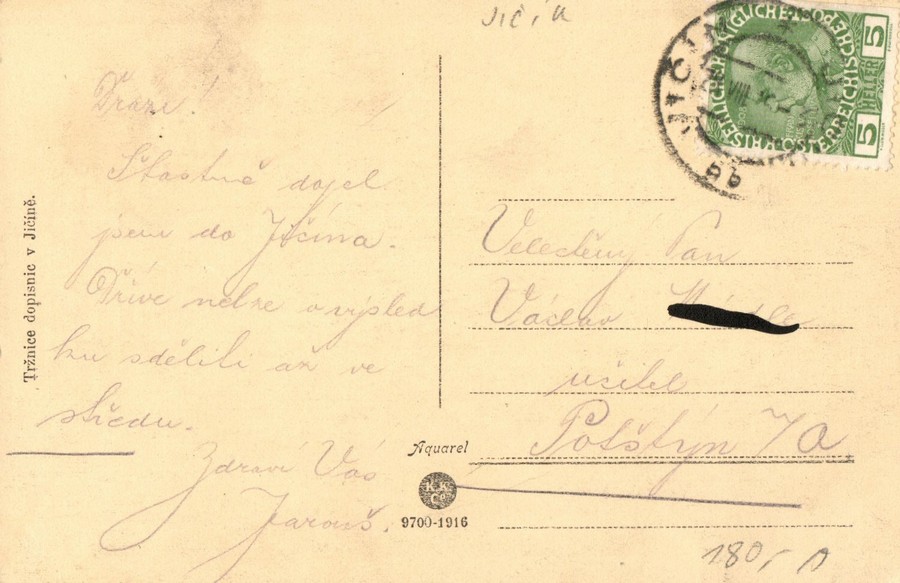 Jičín
Drazí!
Šťastně dojel
jsem do Jičína.
Dříve nelze o výsled
ku sděliti až ve
středu.
Zdraví Vás
Jarouš.
Tržnice dopisnic v Jičíně.
Aquarel
K.K.
Co
9700-1916
JIČÍN
VIII
6b
KAISERLICHE KÖNIGLICHE ÖSTERREICHISCHE POST
5 HELLER 5
Velectěný Pan
Václav
učitel
Potštýn
180,-